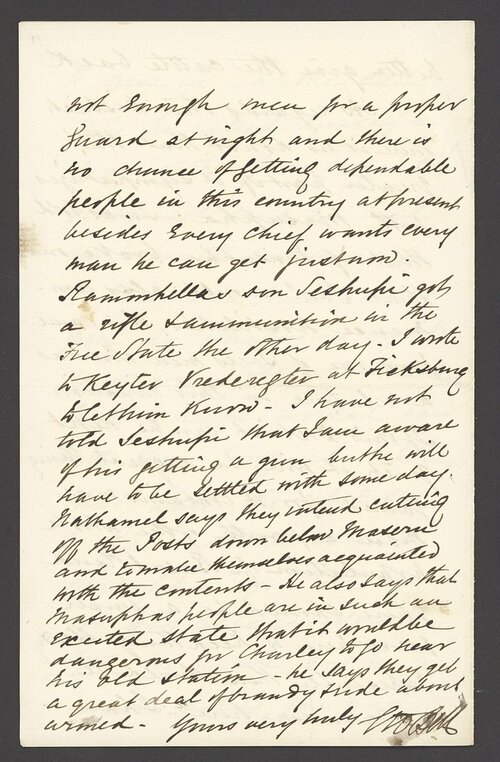 not enough men for a proper
guard at night and there is
no chance of getting dependable
people in this country at present
besides Every chief wants every
man he can get just now.
Ramanhellas son Seshupi got
a rifle & ammunition in the
Free State the other day - I wrote
to Keyter Vrederegter at Ficksburg
to let him know - I have not
told Seshupi that I am aware
of his getting a gun but he will
have to be settled with some day.
Nathaniel says they intend cutting
off the Posts down below Maseru
and to make themselves acquainted
with the contents - He also says that
Masuphas people are in such an
excited state that it would be
dangerous for Charley to go near
his old station - he says they get
a great deal of brandy & ride about
armed - Yours very truly